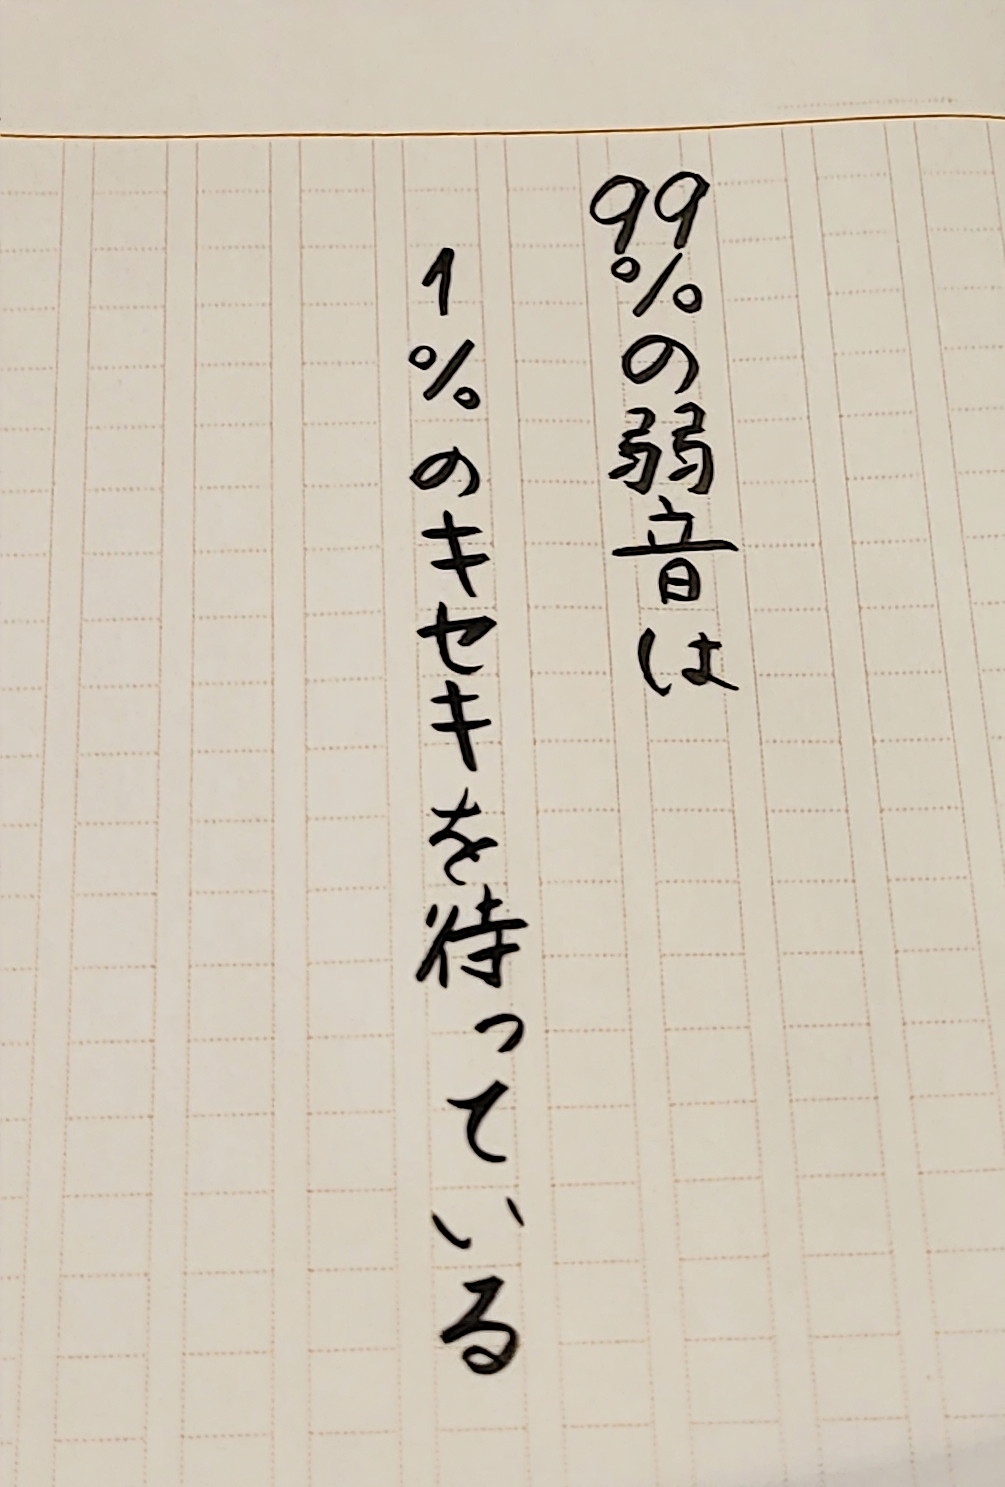 99%の弱音は
1%のキセキを待っている